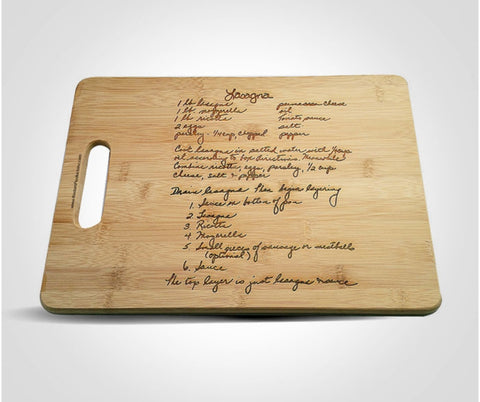 Lasagna
1 lb lasagna parmesan cheese
1 lb mozzarella oil
1 lb ricotta tomato sauce
2 eggs salt
parsley, 1/4 cup, chopped pepper
Cook lasagna in salted water with
oil according to box directions. Meanwhile
Combine ricotta, eggs, parsley, 1/2 cup
cheese, salt & pepper
Drain lasagna Then begin layering
1. Sauce on bottom of pan
2. Lasagna
3. Ricotta
4. Mozzarella
5. Small pieces of sausage or meatballs
(optional)
6. Sauce
The top layer is just lasagna sauce